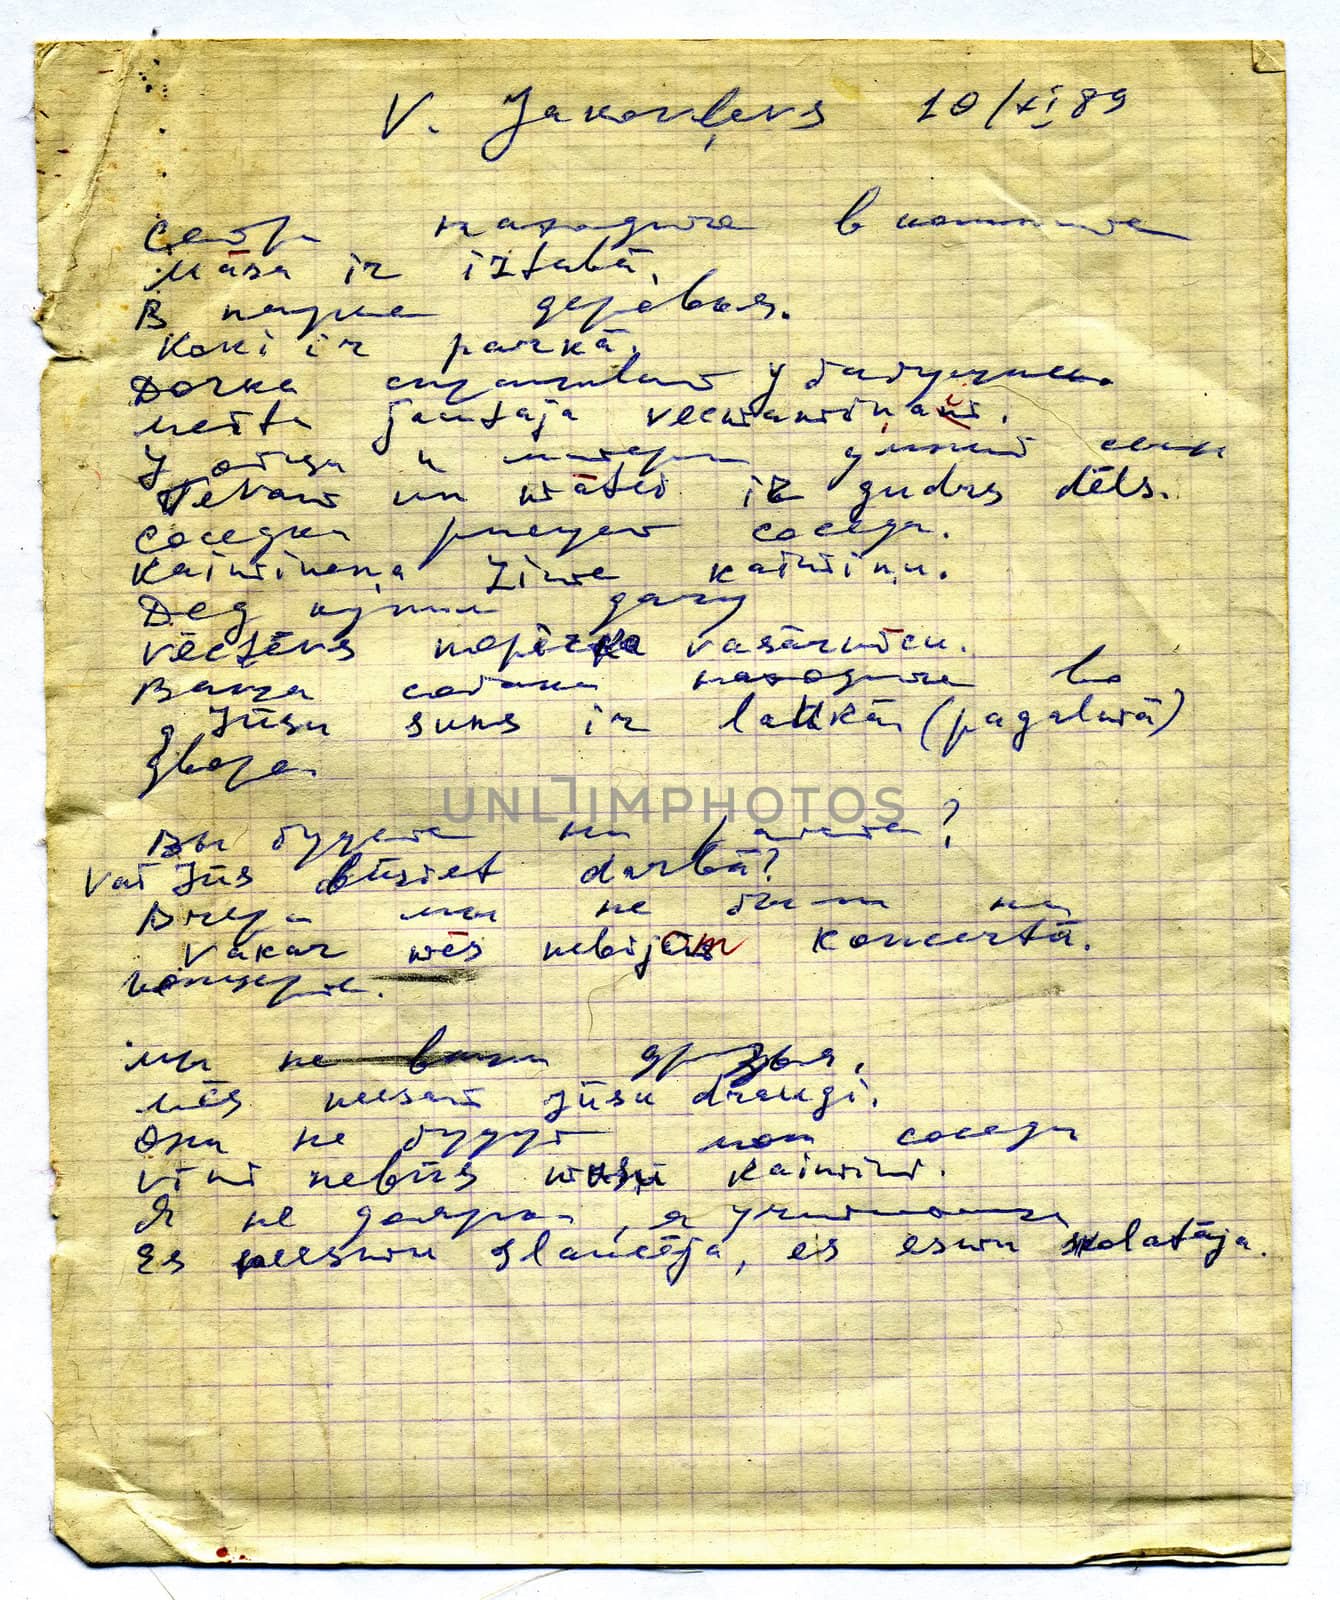 V. Jakovļevs 10/XI 89
Сестра находится в комнате
Māsa ir iztabā.
В парке деревья.
Koki ir parkā.
Дочка спрашивает у бабушки.
Meita jautāja vecmamiņai.
У отца и матери умный сын
Tēvam un mātei ir gudrs dēls.
Соседка рисует соседа.
Kaimiņiena zīmē kaimiņu.
Дед купил дачу
Vectēvs nopirka vasarnīcu.
Ваша собака находится во
Jūsu suns ir laukā (pagalmā)
дворе.
Вы будете на работе?
Vai Jūs būsiet darbā?
Вчера мы не были на
Vakar mēs nebijām koncertā.
концерте.
Мы не ваши друзья.
Mēs neesam Jūsu draugi.
Они не будут мои соседи
Viņi nebūs mūsu kaimiņi.
Я не доярка, я учительница
Es neesmu slaucēja, es esmu skolotāja.
UNLIMPHOTOS